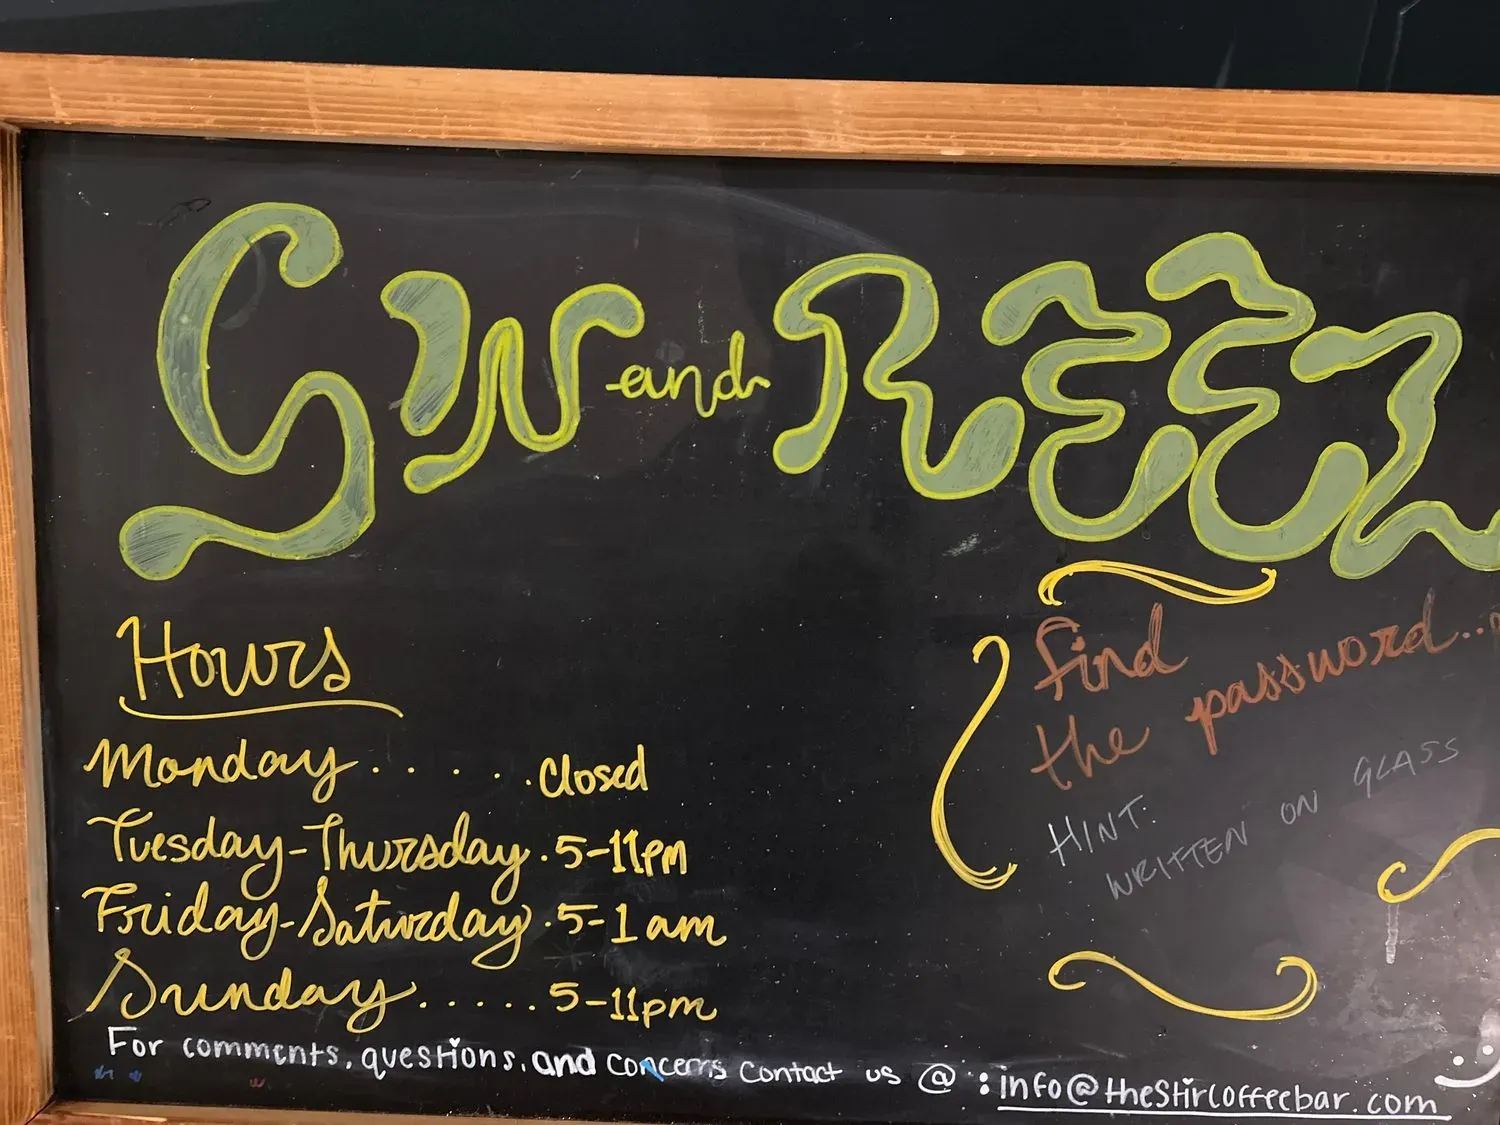 GIN and REEL
Hours
Monday . . . . . Closed
Tuesday-Thursday . 5-11pm
Friday-Saturday . 5-1am
Sunday . . . . . 5-11pm
find
the password...
HINT:
WRITTEN ON GLASS
For comments, questions, and concerns contact us @ : info@thestircoffeebar.com